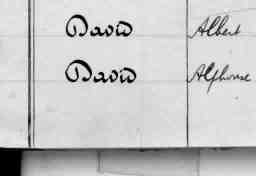 David Albert
David Alphonse